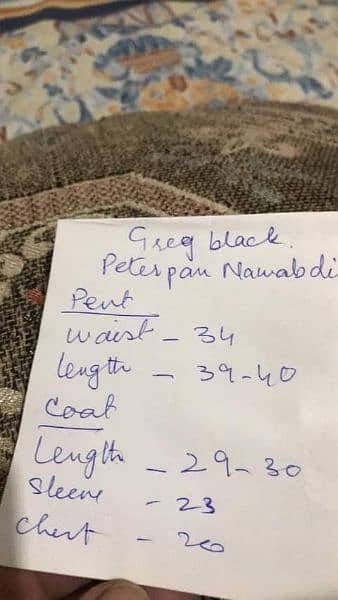 Greg black.
Peterpan Nawabdi
Pent
waist - 34
length - 39-40
Coat
Length - 29-30
Sleeve - 23
Chest - 20